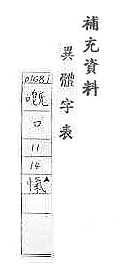 補充資料
異體字表
01681
嘅
口
11
14
愾▲